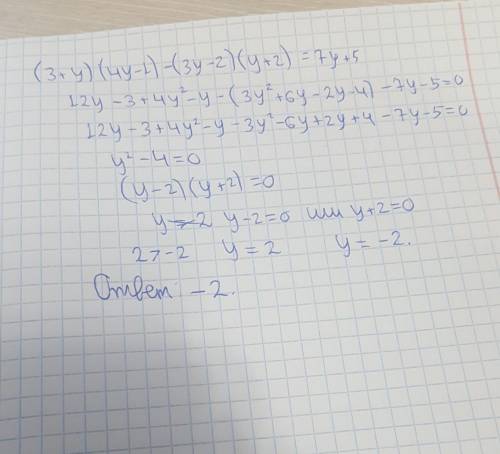 (3+y)(4y-1)-(3y-2)(y+2)=7y+5
12y-3+4y²-y-(3y²+6y-2y-4)-7y-5=0
12y-3+4y²-y-3y²-6y+2y+4-7y-5=0
y²-4=0
(y-2)(y+2)=0
y=2 y-2=0 или y+2=0
2>-2 y=2 y=-2.
Ответ -2.